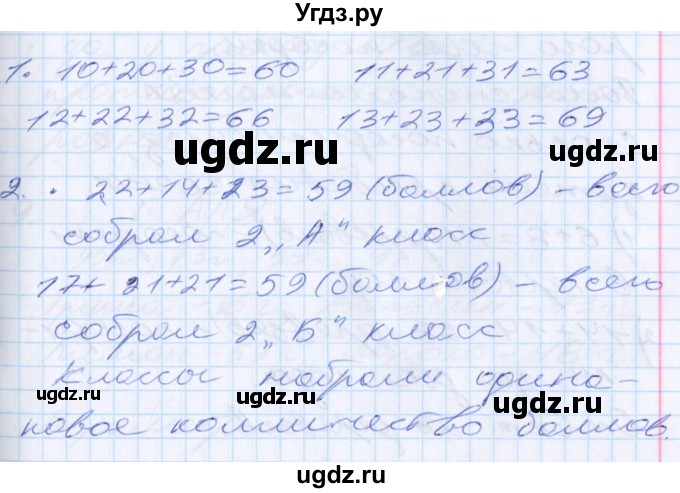 Угдз.ру
1. 10+20+30=60 11+21+31=63
12+22+32=66 13+23+33=69
ugdz.ru ugdz.ru
2. · 22+14+23=59 (баллов) – всего
собрал 2 „А" класс
17+ 21+21=59 (баллов) – всего
собрал 2 „Б" класс
Классы набрали одина-
ugdz.ru ugdz.ru ugdz.ru
ковое колличество баллов.
ugdz.ru